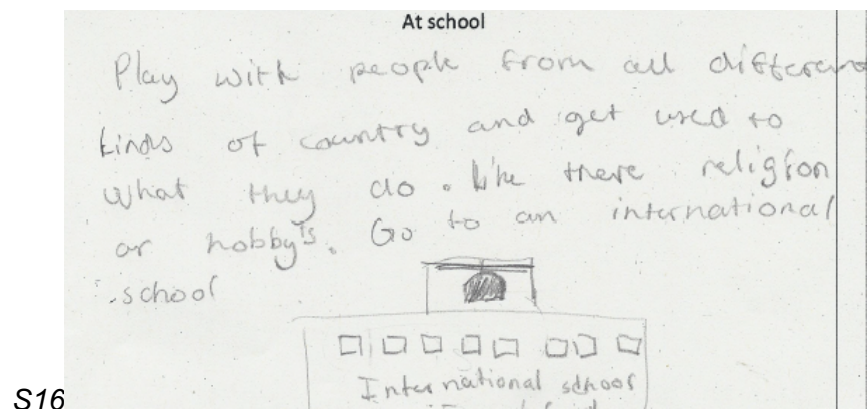 At school
Play with people from all different
kinds of country and get used to
what they do. like there religion
or hobby's. Go to an international
school
International school
S16